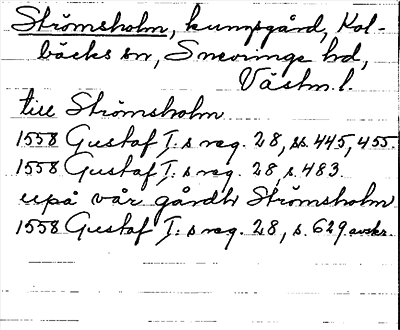 Strömsholm, kungsgård, Kol-
bäcks sn, Snevringe hd,
Västm. l.
till Strömsholm
1558 Gustaf I:s reg. 28, ss. 445, 455.
1558 Gustaf I:s reg. 28, s. 483.
upå vår gårdh Strömsholm
1558 Gustaf I:s reg. 28, s. 629 avskr.